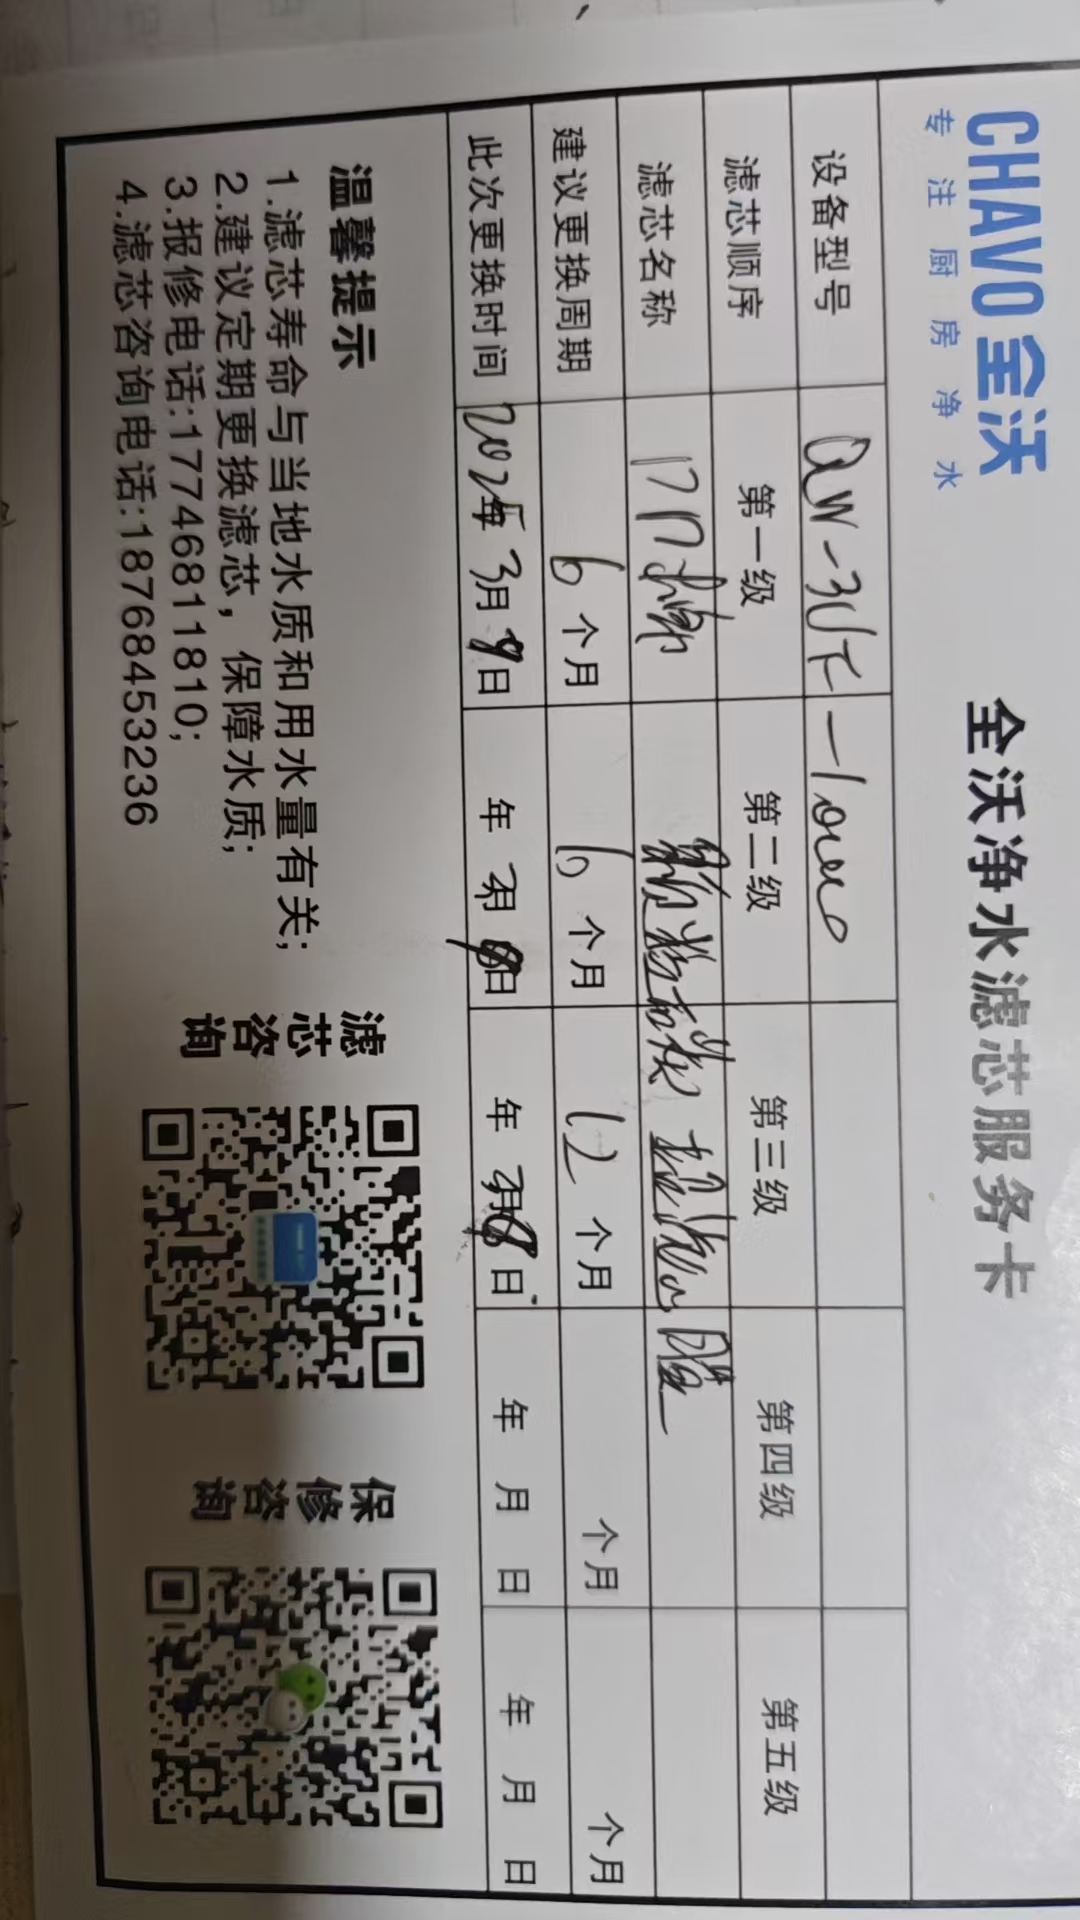 CHAVO全沃
专注厨房净水
全沃净水滤芯服务卡
设备型号
滤芯顺序 第一级 第二级 第三级 第四级 第五级
滤芯名称 PP棉 颗粒炭 超滤膜
建议更换周期 6个月 6个月 12个月 个月 个月
此次更换时间 年3月 日 年 月 日 年 月8日 年 月 日 年 月 日
温馨提示
1.滤芯寿命与当地水质和用水量有关;
2.建议定期更换滤芯,保障水质;
3.报修电话:17746811810;
4.滤芯咨询电话:18768453236
滤芯咨询
保修咨询